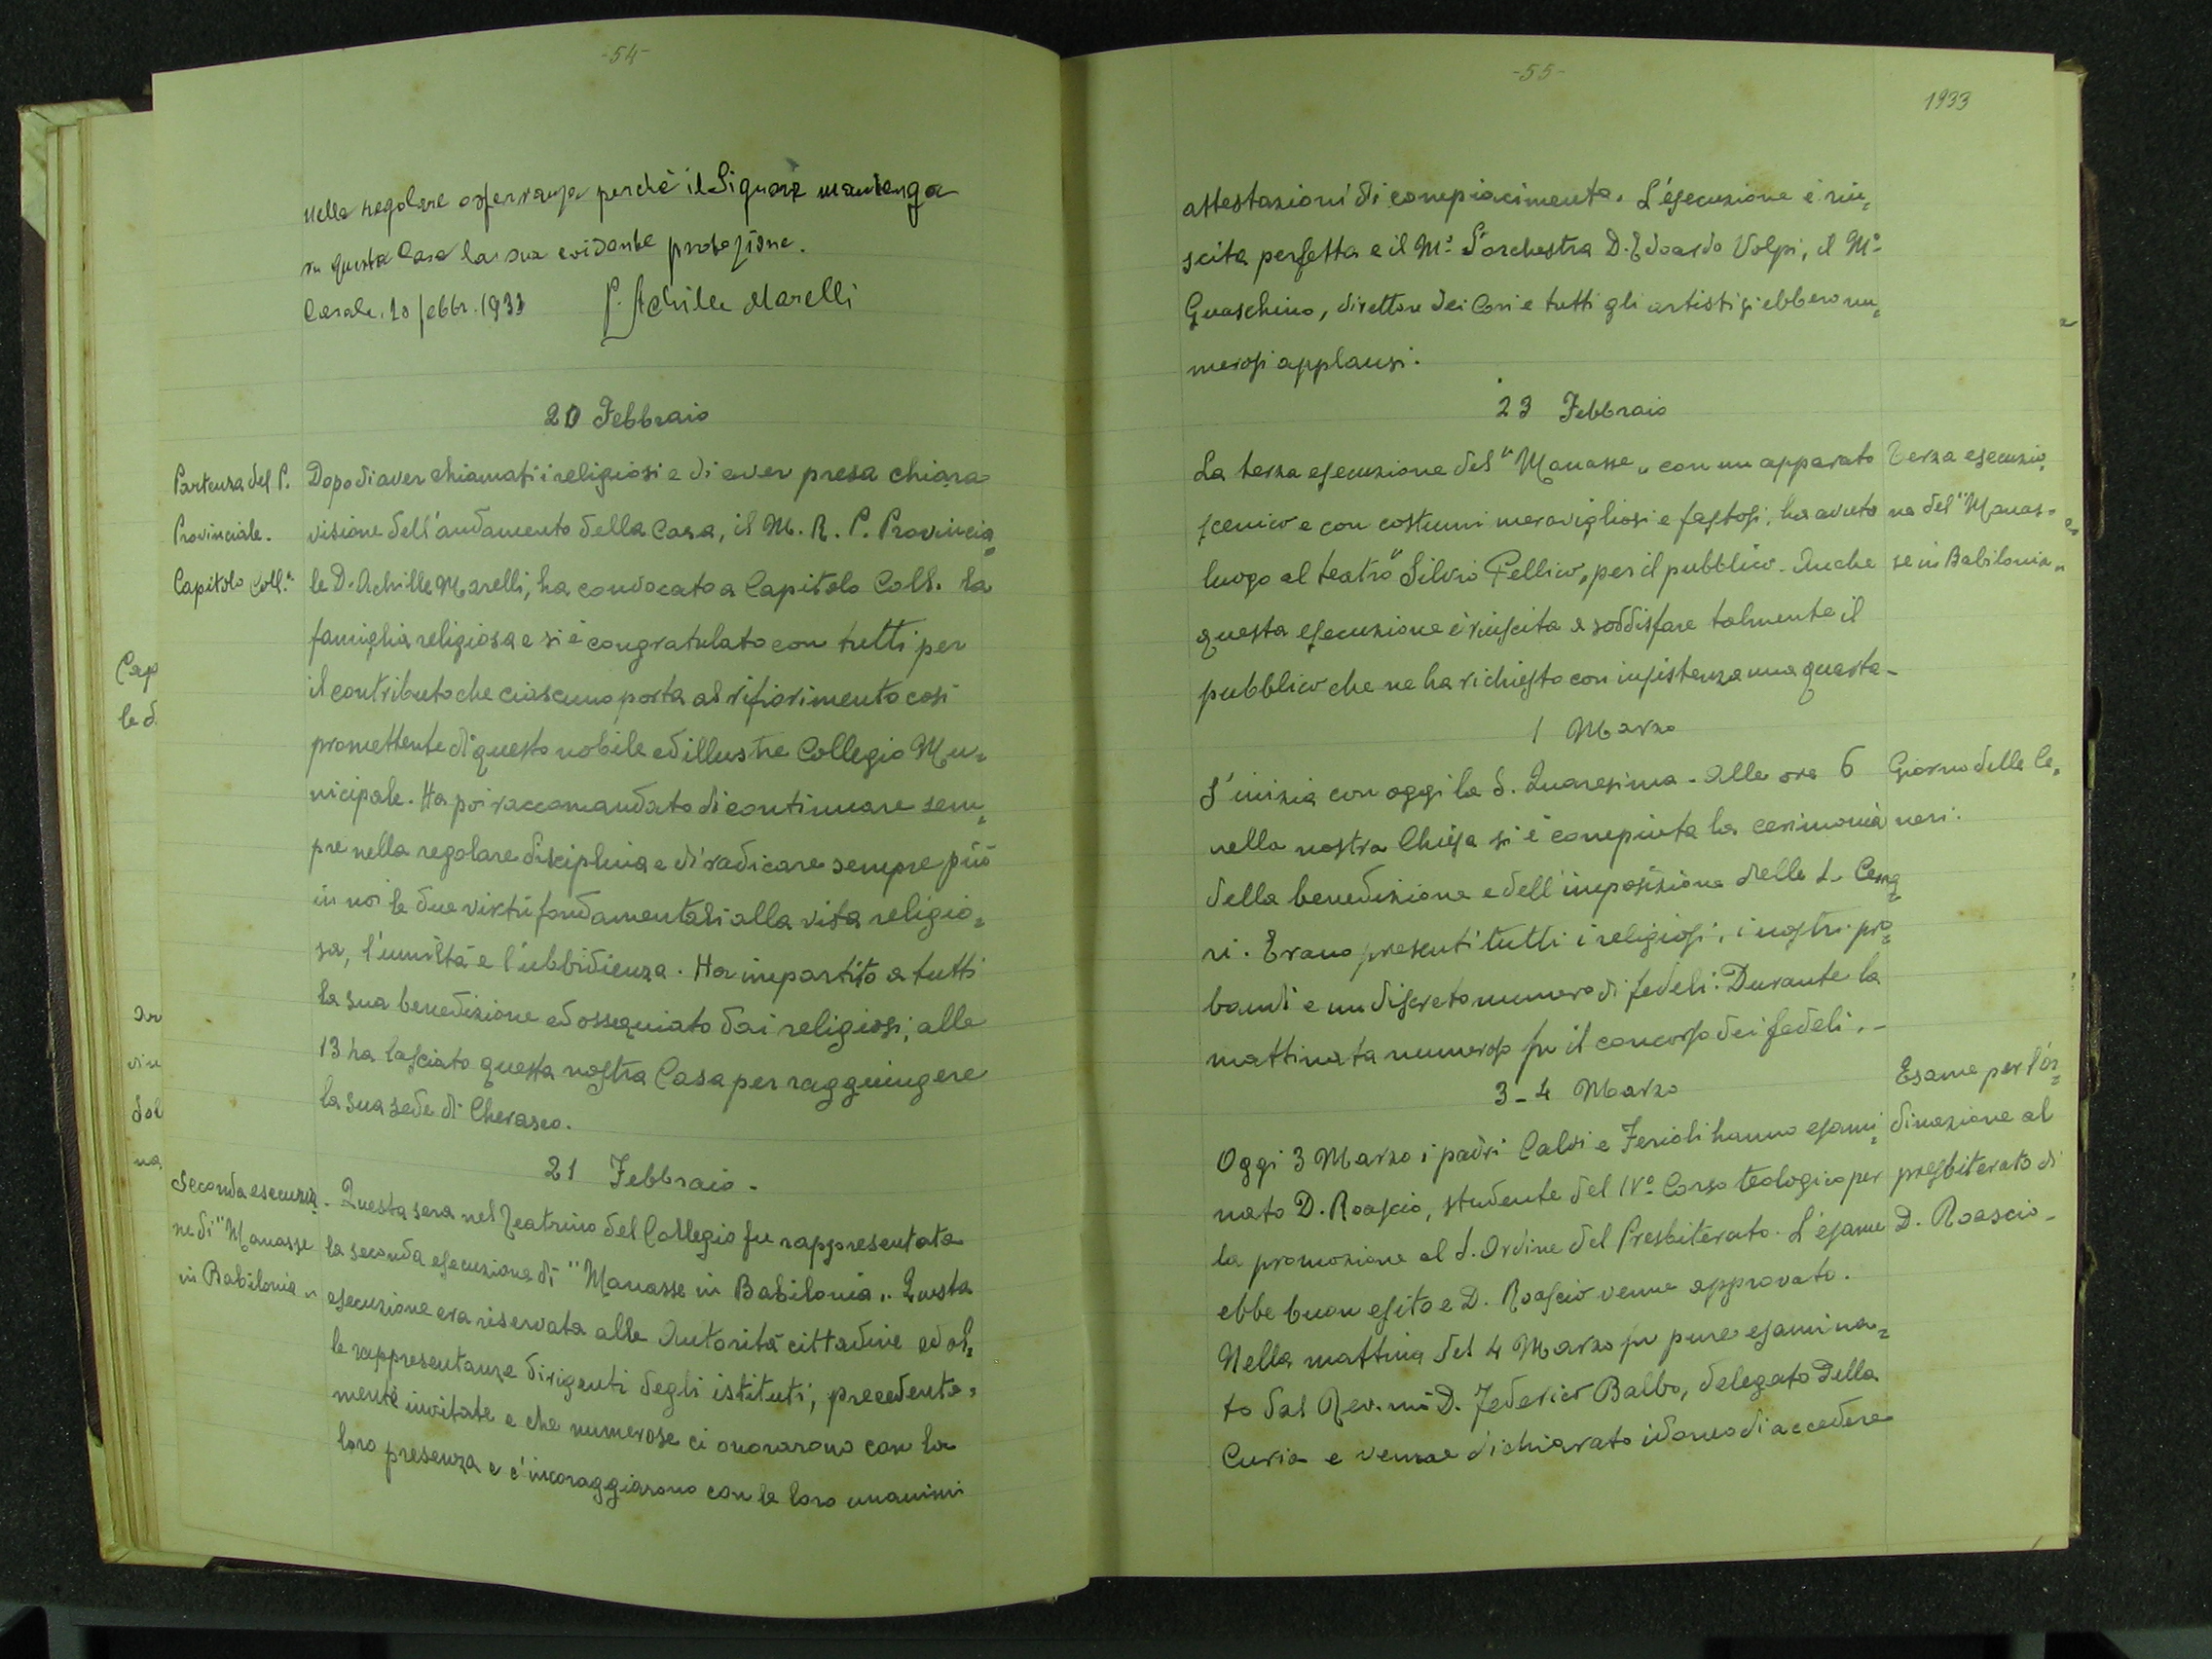 -54-
nella regolare osservanza perchè il Signore mantenga
su questa Casa la sua evidente protezione.
Casale, 20 febbr. 1933 P. Achille Marelli
20 Febbraio
Partenza del P.
Provinciale.
Capitolo Coll.e
Dopo di aver chiamati i religiosi e di aver presa chiara
visione dell'andamento della Casa, il M. R. P. Provincia=
le D. Achille Marelli, ha convocato a Capitolo Coll. la
famiglia religiosa e si è congratulato con tutti per
il contributo che ciascuno porta al rifiorimento così
promettente di questo nobile ed illustre Collegio Mu=
nicipale. Ha poi raccomandato di continuare sem=
pre nella regolare disciplina e di radicare sempre più
in noi le due virtù fondamentali alla vita religio=
sa, l'umiltà e l'ubbidienza. Ha impartito a tutti
la sua benedizione ed ossequiato dai religiosi, alle
13 ha lasciato questa nostra Casa per raggiungere
la sua sede di Cherasco.
21 Febbraio.
Seconda esecuzio=
ne di "Manasse
in Babilonia"
Questa sera nel Teatrino del Collegio fu rappresentata
la seconda esecuzione di "Manasse in Babilonia". Questa
esecuzione era riservata alle Autorità cittadine ed al=
le rappresentanze dirigenti degli istituti, precedente=
mente invitate e che numerose ci onorarono con la
loro presenza e c'incoraggiarono con le loro unanimi
Cap
le d
ar
viu
dol
na
-55-
1933
attestazioni di compiacimento. L'esecuzione è riu=
scita perfetta e il M.o d'orchestra D. Edoardo Volpi, il M.o
Guaschino, direttore dei Cori e tutti gli artisti si ebbero nu=
merosi applausi.
23 Febbraio
La terza esecuzione del "Manasse" con un apparato
scenico e con costumi meravigliosi e fastosi, ha avuto
luogo al teatro "Silvio Pellico" per il pubblico. Anche
questa esecuzione è riuscita a soddisfare talmente il
pubblico che ne ha richiesto con insistenza una quarta.
Terza esecuzio=
ne del "Manas=
se in Babilonia"
1 Marzo
S'inizia con oggi la S. Quaresima. Alle ore 6
nella nostra Chiesa si è compiuta la cerimonia
della benedizione e dell'imposizione delle S. Cene=
ri. Erano presenti tutti i religiosi, i nostri pro=
bandi e un discreto numero di fedeli. Durante la
mattinata numeroso fu il concorso dei fedeli.
Giorno delle Ce=
neri.
3-4 Marzo
Oggi 3 Marzo i padri Calvi e Ferioli hanno esami=
nato D. Roascio, studente del IV° Corso teologico per
la promozione al S. Ordine del Presbiterato. L'esame
ebbe buon esito e D. Roascio venne approvato.
Nella mattina del 4 Marzo fu pure esamina=
to dal Rev.mo D. Federico Balbo, delegato della
Curia e venne dichiarato idoneo di accedere
Esame per l'or=
dinazione al
presbiterato di
D. Roascio.